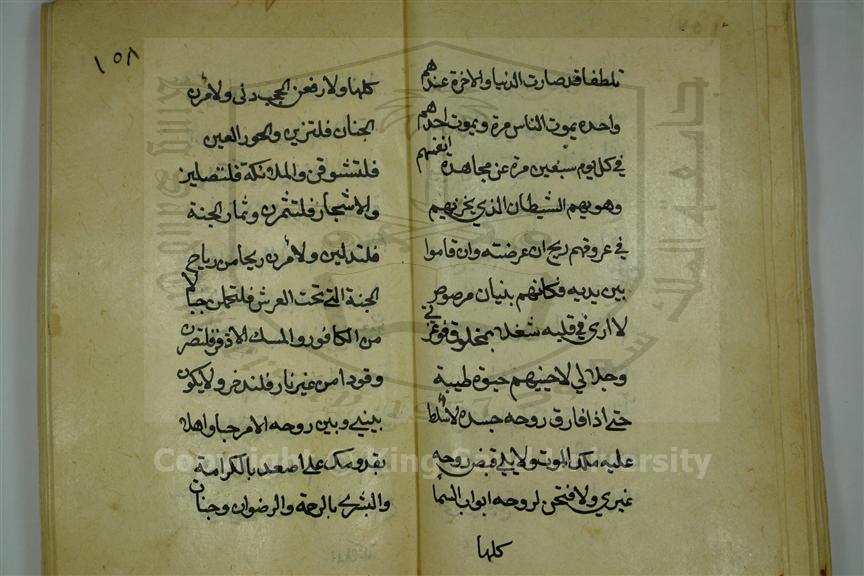 تلطفا قد صارت الدنيا والاخرة عندهم
واحده يموت الناس مرة ويموت احدهم
في كل يوم سبعين مرة عن مجاهدة انفسهم
وهويهم الشيطان الذي يجري بهم
في عروقهم ريح ان عرضته وان قاموا
بين يديه فكانهم بنيان مرصوص
لا ارى في قلبه شغلا بمخلوق فوعزتي
وجلالي لاحيينهم حيوة طيبة
حتى اذا فارق روحه جسده لا اسلط
عليه ملك الموت ولا يلي قبض روحه
غيري ولا فتحن لروحه ابواب السما
كلها
١٥٨
كلها ولارفعن الحجب دنى ولامرن
الجنان فلتزين والحور العين
فلتتشوقن والملائكة فلتصلين
والاشجار فلتثمرن وثمار الجنة
فلتدلين ولامرن ريحا من رياح
الجنة التي تحت العرش فلتحملن جبالا
من الكافور والمسك الاذفر فلتصرن
وقودا من غير نار فلتدخر ولا يكون
بيني وبين روحه الامر حبا واهلا
بقدومك علي اصعد بالكرامة
والبشرى بالرحمة والرضوان وجنان
Copyright © King Saud University
جامعة الملك سعود
King Saud University
1957